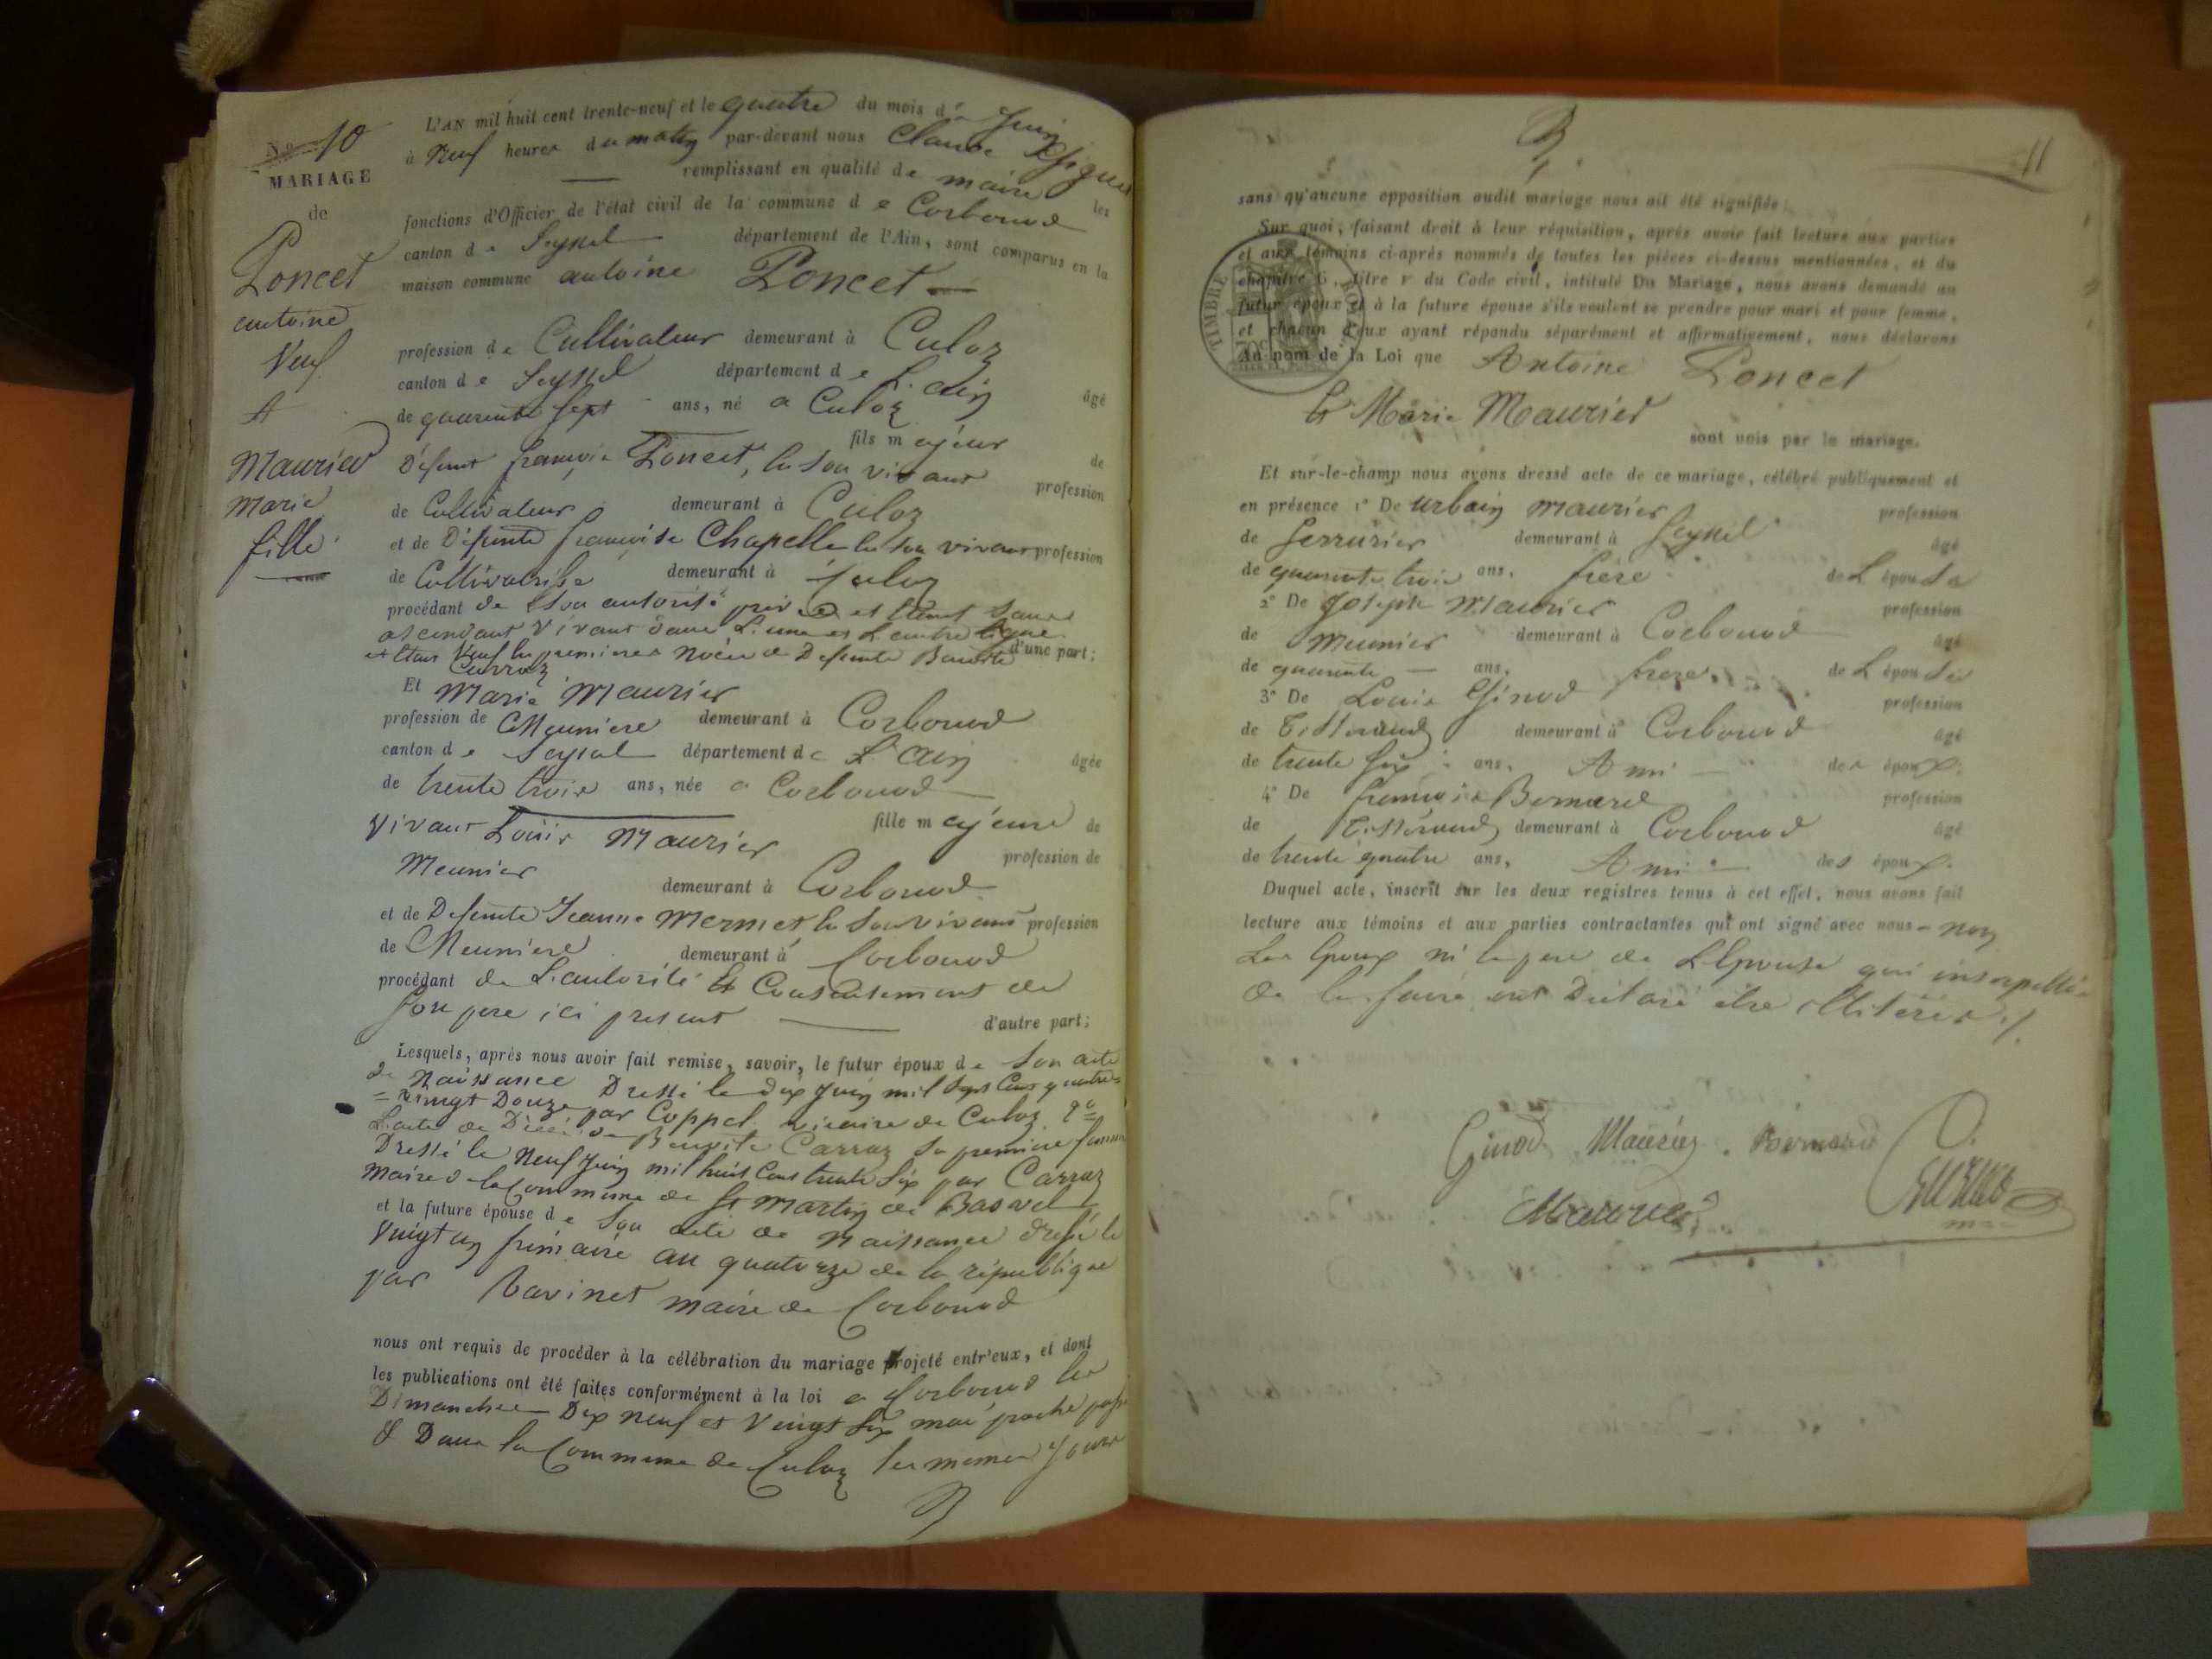 No. 10
MARIAGE
de
Poncet
antoine
Veuf
A
Maurier
Marie
fille
L'AN mil huit cent trente-neuf et le quatre du mois de Juin
à Neuf heures du matin par-devant nous Claude
remplissant en qualité de maire les
fonctions d'Officier de l'état civil de la commune de Corbonod
canton de Seyssel département de l'Ain, sont comparus en la
maison commune antoine Poncet
profession de Cultivateur demeurant à Culoz
canton de Seyssel département de L'ain âgé
de quarente sept ans, né a Culoz
fils majeur de
Défunt françois Poncet, lu son vivant profession
de Cultivateur demeurant à Culoz
et de Défunte françoise Chapelle lu son vivant profession
de Cultivatrisse demeurant à Culoz
procédant de son autorité privée et etant sans
ascendant vivant dans L'une et L'autre ligne
d'une part;
et etant Veuf lu premieres Noces de Defunte Benoite
Carraz
Et Marie Maurier
profession de Meuniere demeurant à Corbonod
canton de Seyssel département de L'ain âgée
de trente trois ans, née a Corbonod
fille majeure de
vivant Louis Maurier profession de
Meunier demeurant à Corbonod
et de Defunte Jeanne Mermet lu son vivant profession
de Meuniere demeurant à Corbonod
procédant de L'autorité Et Consentement de
son pere ici present d'autre part;
Lesquels, après nous avoir fait remise, savoir, le futur époux de Son acte
de Naissance Dressé le dix Juin mil sept Cent quatre
= vingt Douze par Coppel vicaire de Culoz 2°
L'acte de Décès de Benoite Carraz sa premiere femme
Dressé le Neuf Juin mil huit Cent trente six par Carraz
Maire de la Commune de St Martin de Bavel
et la future épouse de Son acte de Naissance dressé le
Vingt un frimaire an quatorze de la république
par Tavinet maire de Corbonod
nous ont requis de procéder à la célébration du mariage projeté entr'eux, et dont
les publications ont été faites conformément à la loi a Corbonod les
Dimanches Dix neuf et Vingt six mai proche passé
& Dans la Commune de Culoz les memes Jours
11
sans qu'aucune opposition audit mariage nous ait été signifiée;
Sur quoi, faisant droit à leur réquisition, après avoir fait lecture aux parties
et aux témoins ci-après nommés de toutes les pièces ci-dessus mentionnées, et du
chapitre 6, titre v du Code civil, intitulé Du Mariage, nous avons demandé au
futur époux et à la future épouse s'ils veulent se prendre pour mari et pour femme,
et chacun d'eux ayant répondu séparément et affirmativement, nous déclarons
Au nom de la Loi que Antoine Poncet
TIMBRE ROYAL
70c
Et Marie Maurier
sont unis par le mariage.
Et sur-le-champ nous avons dressé acte de ce mariage, célébré publiquement et
en présence 1° De Urbain Maurier profession
de Serrurier demeurant à Seyssel âgé
de quarente trois ans, frère de L épouse
2° De Joseph Maurier profession
de Meunier demeurant à Corbonod âgé
de quarente ans, frere de L épouse
3° De Louis Ginod profession
de Tisserand demeurant à Corbonod âgé
de trente six ans, Ami des époux
4° De françois Bernard profession
de Tisserand demeurant à Corbonod âgé
de trente quatre ans, Ami des époux
Duquel acte, inscrit sur les deux registres tenus à cet effet, nous avons fait
lecture aux témoins et aux parties contractantes qui ont signé avec nous - non
Les Epoux ni le pere de L'Epouse qui interpellé
de le faire ont Déclaré etre illitérés
Ginod Maurier Bernard
Maurier